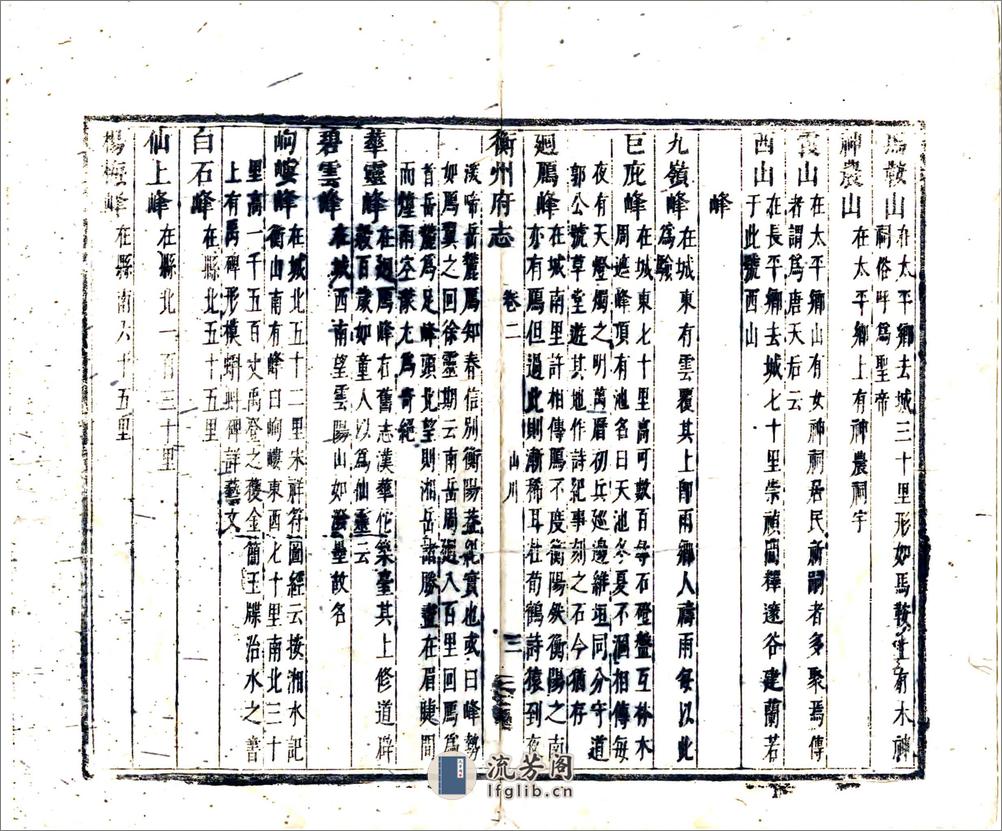 馬鞍山在太平鄉去城三十里形如馬鞍上有木神
祠俗呼為聖帝
神農山在太平鄉上有神農祠宇
霞山在太平鄉山有女神祠居民祈嗣者多聚焉傳
者謂為唐天后云
西山在長平鄉去城七十里崇禎間釋遠谷建蘭若
于此號西山
峰
九嶺峰在城東有雲覆其上即雨鄉人禱雨每以此
為驗
巨庇峰在城東七十里高可數百每石磴盤互林木
周遮峰頂有池名曰天池冬夏不涸相傳每
夜有天燈燭之明萬曆初兵巡邊維垣同分守道
郭公號草堂遊其地作詩紀事刻之石今猶存
迴鴈峰在城南里許相傳鴈不度衡陽然衡陽之南
亦有鴈但過此則漸稀耳杜荀鶴詩猿到夜
衡州府志 卷二 山川 三
溪啼岳麓鴈知春信別衡陽蓋紀實也或曰峰勢
如鴈翼之回徐靈期云南岳周廻八百里回鴈為
首岳麓為足峰頭北望則湘岳諸勝盡在眉睫間
而煙雨空濛尤為奇絕
華靈峰在廻鴈峰右舊志漢華佗築臺其上修道辟
穀百歲如童人以為仙靈云
碧雲峰在城西南望雲陽山如潑墨故名
岣嶁峰在城北五十二里宋祥符圖經云按湘水記
衡山南有峰曰岣嶁東西七十里南北三十
里高一千五百丈禹登之獲金簡玉牒治水之書
上有禹碑形模蝌蚪碑詳藝文
白石峰在縣北五十五里
仙上峰在縣北一百三十里
楊梅峰在縣南六十五里
流芳阁
lfglib.cn